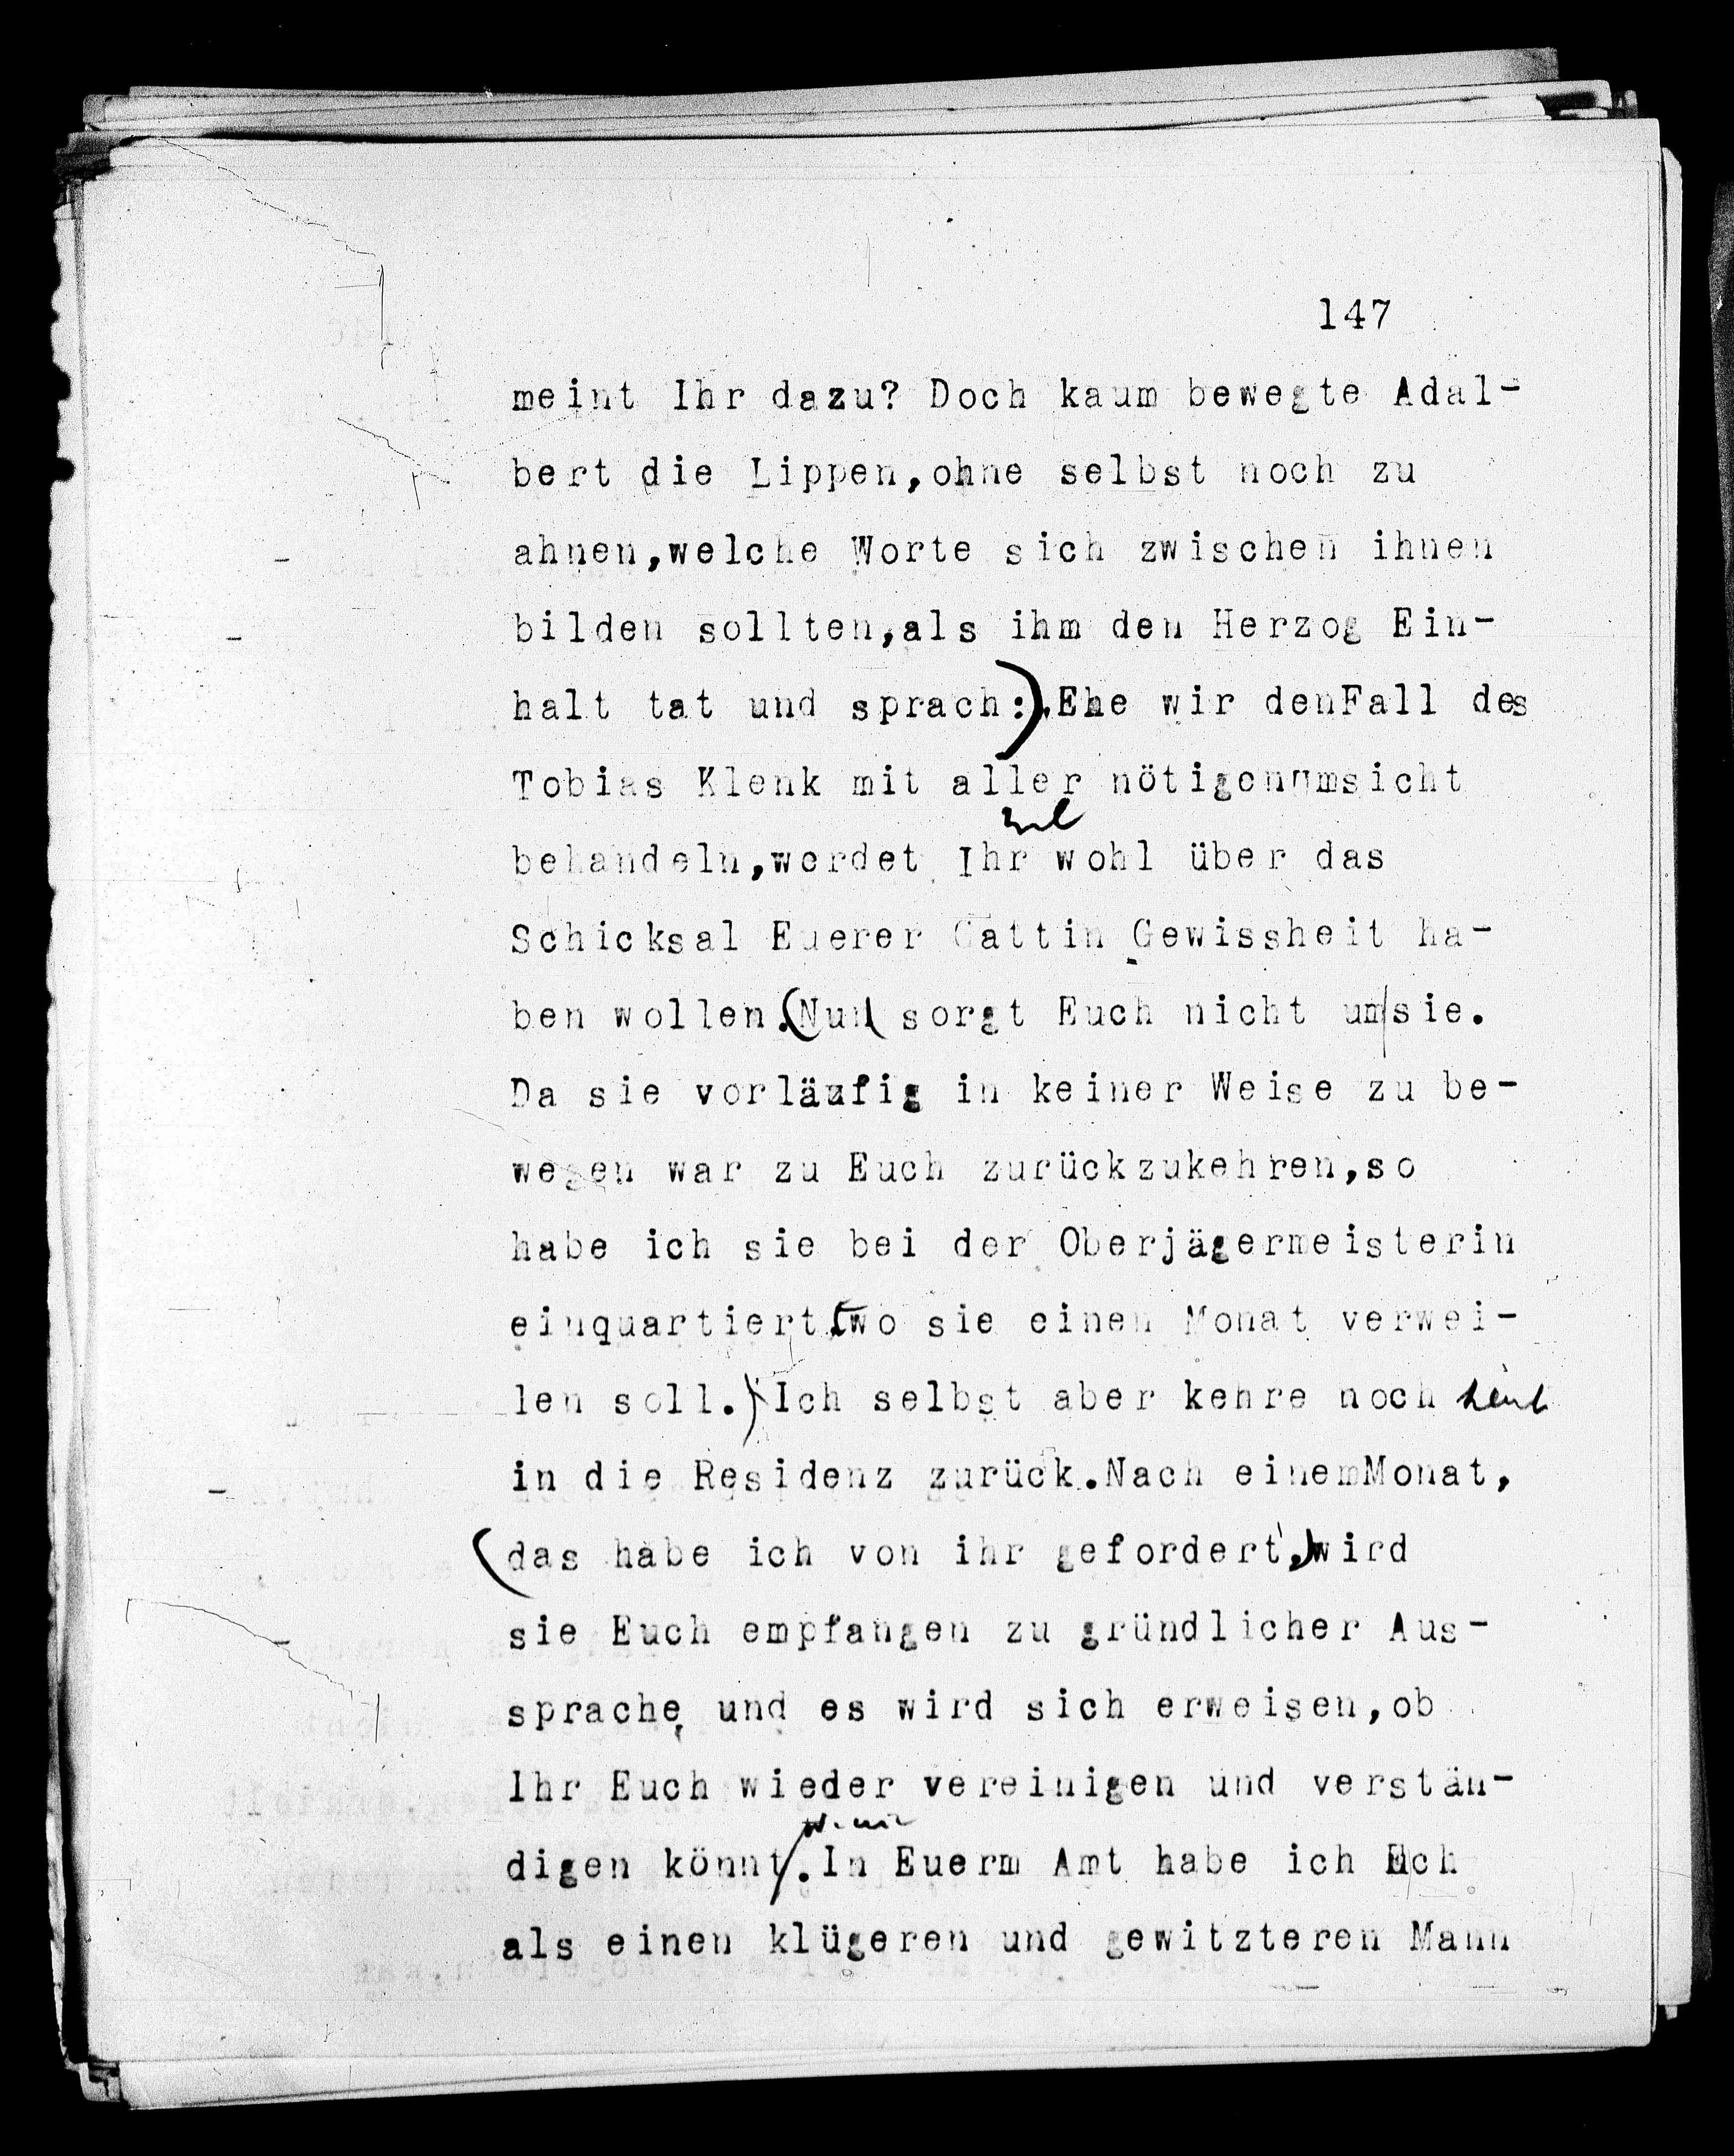 147
meint Ihr dazu? Doch kaum bewegte Adal-
bert die Lippen,ohne selbst noch zu
ahnen,welche Worte sich zwischen ihnen
bilden sollten,als ihm den Herzog Ein-
halt tat und sprach:).Ehe wir denFall des
Tobias Klenk mit aller nötigenUmsicht
behandeln,werdet Ihr wohl über das
Schicksal Euerer Gattin Gewissheit ha-
ben wollen.(Nun( sorgt Euch nicht um|sie.
Da sie vorläufig in keiner Weise zu be-
wegen war zu Euch zurückzukehren,so
habe ich sie bei der Oberjägermeisterin
einquartiert,(wo sie einen Monat verwei-
len soll.)Ich selbst aber kehre noch heut
in die Residenz zurück.Nach einemMonat,
(das habe ich von ihr gefordert,)wird
sie Euch empfangen zu gründlicher Aus-
sprache, und es wird sich erweisen,ob
Ihr Euch wieder vereinigen und verstän-
digen könnt/.In Euerm Amt habe ich Euch
als einen klügeren und gewitzteren Mann